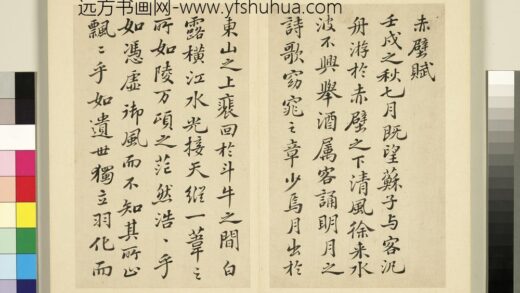 远方书画网-www.yfshuhua.com
赤壁賦
壬戌之秋七月既望蘇子与客汎
舟游於赤壁之下清風徐来水
波不興舉酒属客誦明月之
詩歌窈窕之章少焉月出於
東山之上裵回於斗牛之間白
露橫江水光接天縱一葦之
所如陵万頃之茫然浩〻乎
如馮虛御風而不知其所止
飄〻乎如遺世獨立羽化而